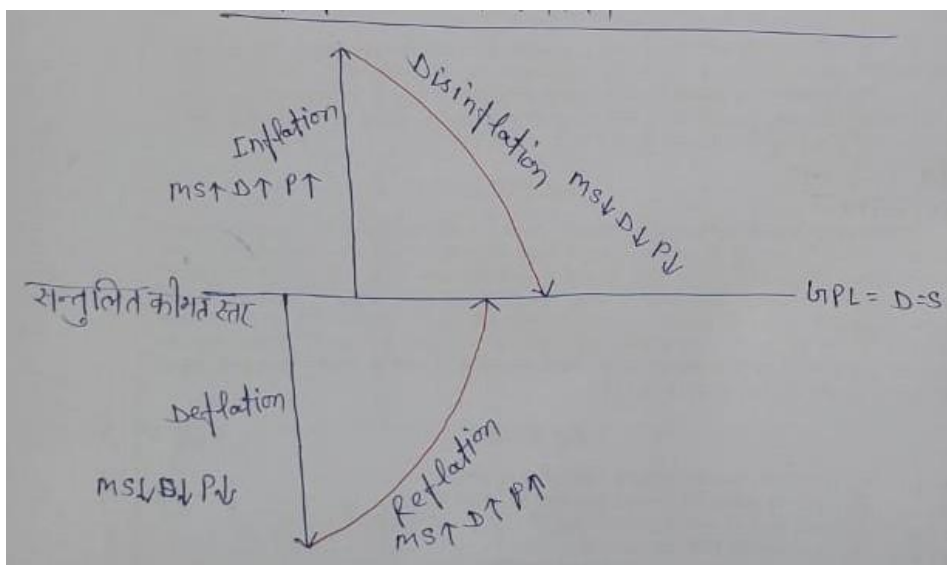 Disinflation MS↓ D↓ P↓
Inflation
MS↑ D↑ P↑
सन्तुलित कीमत स्तर
GPL = D=S
Deflation
MS↓ D↓ P↓
Reflation
MS↑ D↑ P↑